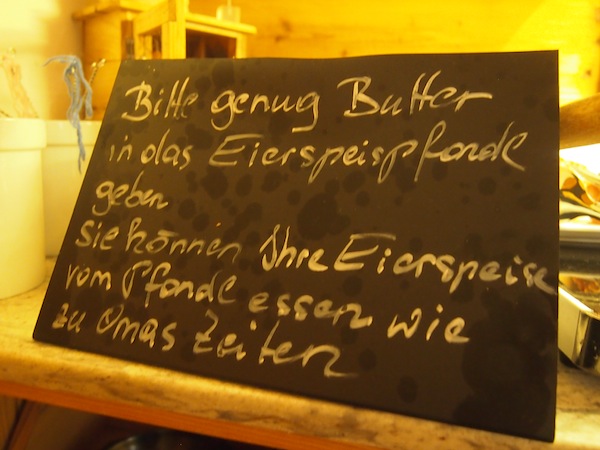 Bitte genug Butter
in das Eierspeispfandl
geben
Sie können Ihre Eierspeise
vom Pfandl essen wie
zu Omas Zeiten